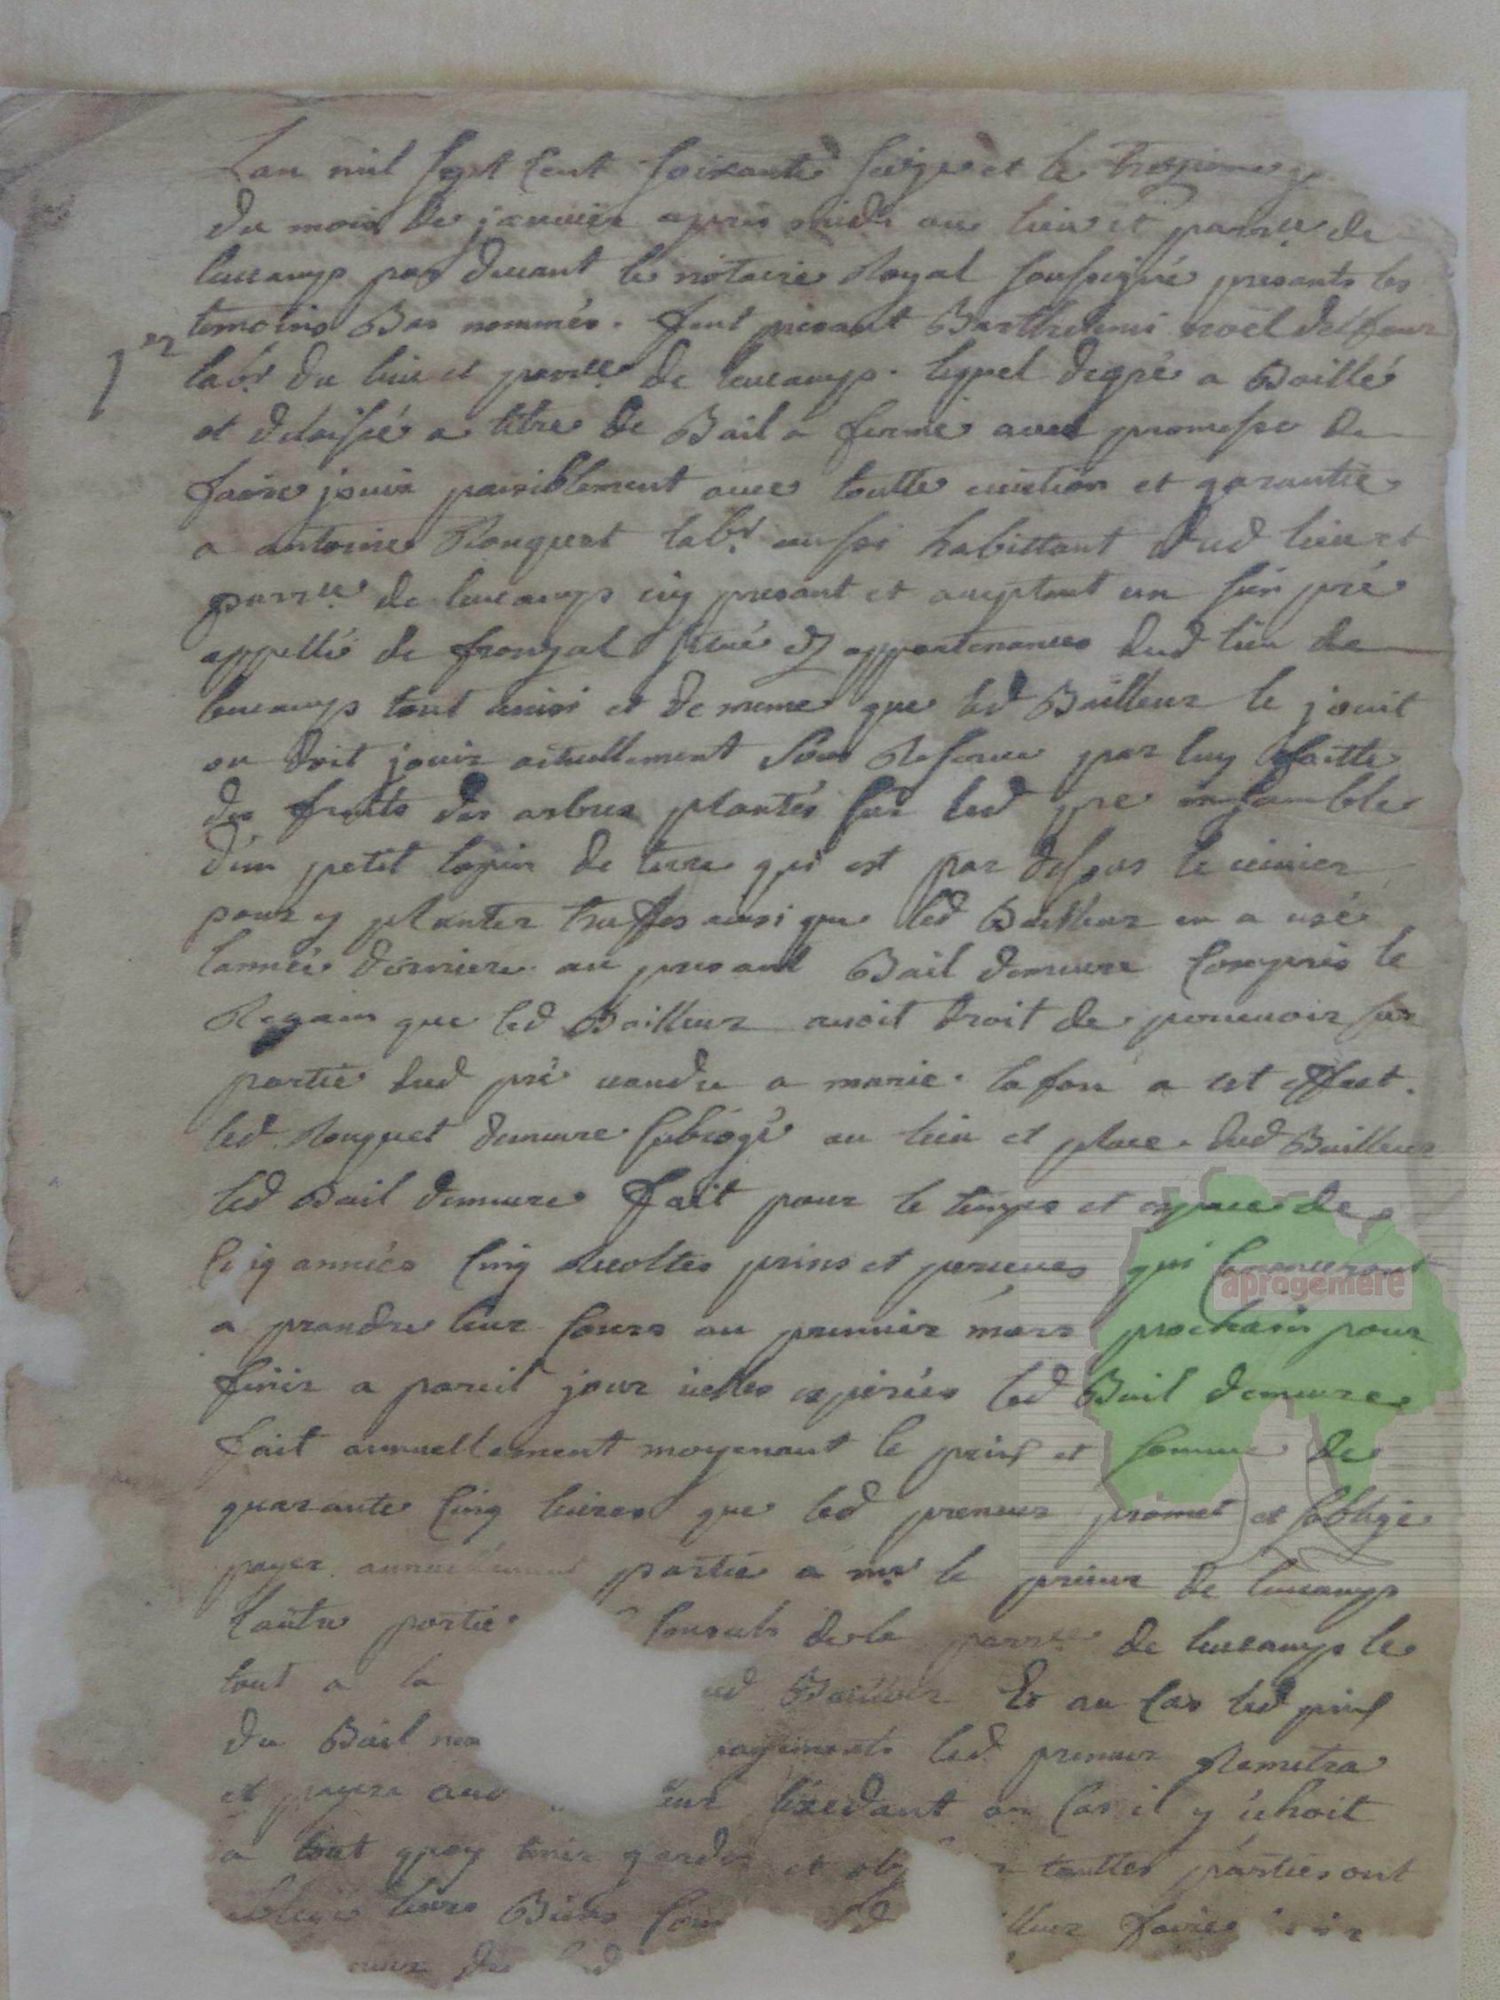 Lan mil sept cent soixante seize et le
du mois de janvier apres midi au lieu et parr.lle de
lucamps par devant le notaire Royal soussigné presants les
temoins Bas nommés. fent presant Barthelemi noël delfour
1er
labr. du lieu et parr.lle de lucamps. lequel de gré a Baillé
et delaissé a titre de Bail a ferme avec promesse de
faire jouir paisiblement avec toutte eviction et garantie
a antoine Rouquet labr. aussi habittant dud lieu et
parr.lle de lucamps icy presant et acceptant un sien pré
appellé de fronzal situé es appartenances dud lieu de
lucamps tout ainsi et de meme que led Bailleur le jouit
ou doit jouir actuellement sous Reserve par luy faitte
des fruits des arbres plantés sur led pre ensamble
d'un petit lopin de terre qui est par dessus le
pour y planter truffes ainsi que led Bailleur en a usé
lannée derniere. au presant Bail demeure compris le
Regain que led Bailleur avoit droit de percevoir sur
partie dud pré vandu a marie lafon a cet effaet.
led. Rouquet demeure subrogé au lieu et place dud Bailleur
led Bail demeure fait pour le temps et espace de
cinq années cinq recoltes prins et perceues qui
a prandre leur cours au premier mars prochain pour
finir a pareil jour icelles expirées led Bail demeure
fait annuellement moyenant le prix et somme de
quarante cinq livres que led preneur promet et soblige
payer annuellement partie a mr le prieur de lucamps
lautre partie consuls de la parr.lle de lucamps le
tout a la ud Bailleur Et au cas led prix
du Bail payements led. preneur Remetra
et payera eur lexedant en cas il y échoit
a tout quoy tenir garder et toutes parties ont
leurs Biens led lleur faire
du led
aprogemere